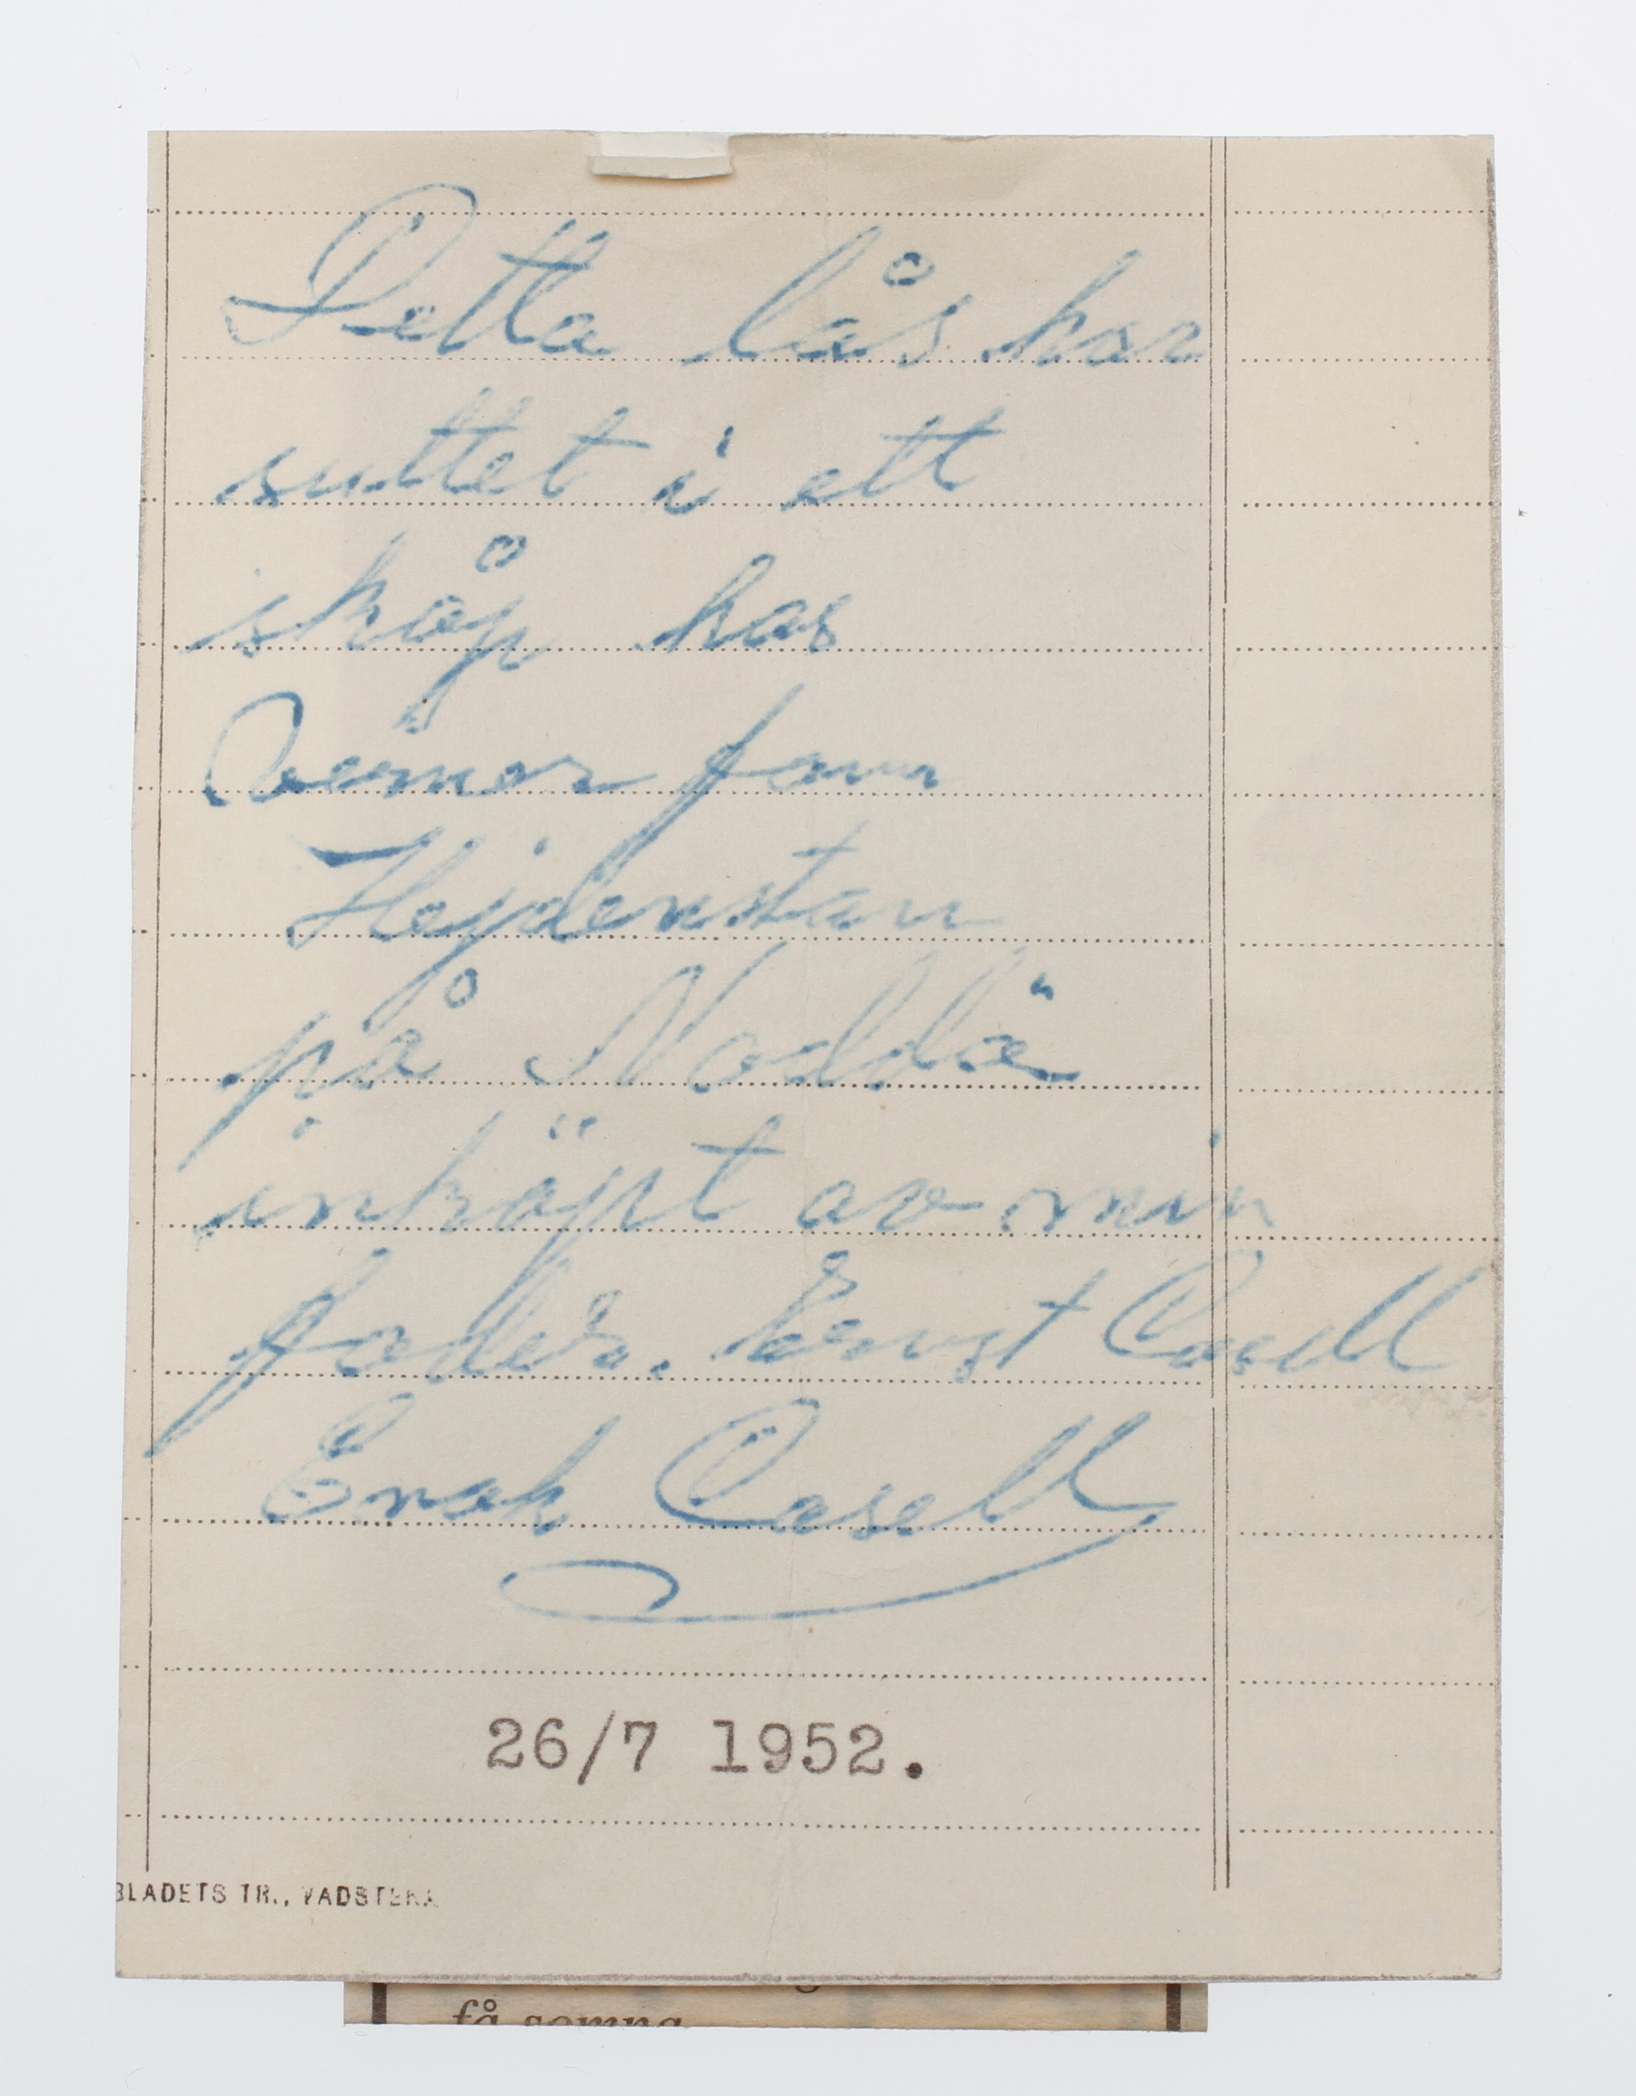 Detta lås har
suttet i ett
skåp hos
Verner fon
Hejdenstam
på Noddö
inköpt av min
fader. Ernst Casell
Enok Casell
26/7 1952.
BLADETS TR., VADSTENA
få somna